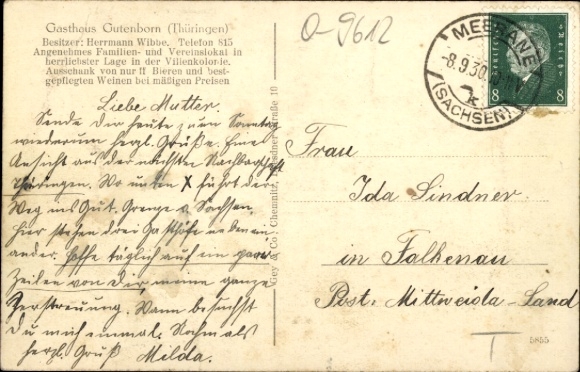 Gasthaus Gutenborn (Thüringen)
Besitzer: Herrmann Wibbe. Telefon 815
Angenehmes Familien- und Vereinslokal in
herrlichster Lage in der Villenkolonie.
Ausschank von nur ff Bieren und best-
gepflegten Weinen bei mäßigen Preisen
O-9612
MEERANE
-8.9.30.
(SACHSEN)
k
8 8
Liebe Mutter.
Sende Dir heute zum Sonntag
wiederum herzl. Grüße. Eine
Ansicht aus der nächsten Nachbarschaft
Thüringen. Wo unten X führt der
Weg ins Gut. Grenze v. Sachsen.
Hier stehen drei Gasthöfe neben ein
ander. Hoffe täglich auf ein paar
Zeilen von Dir meine ganze
Zerstreuung. Wann besuchst
Du mich einmal. Nochmals
herzl. Gruß Milda.
Gey & Co., Chemnitz, Dresdner Straße 10
Frau
Ida Lindner
in Falkenau
Post. Mittweida-Land
T
5855